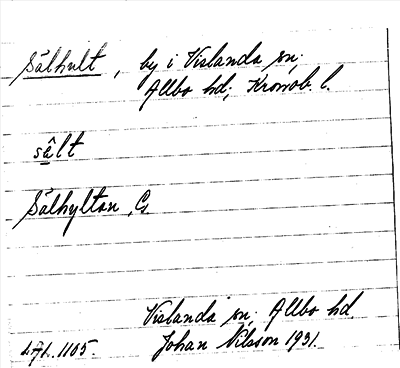 Sålhult, by i Vislanda sn;
Allbo hd; Kronob. l.
sâlt
Sålhyltan,
Vislanda sn; Allbo hd.
1105. Johan Nilsson 1931.